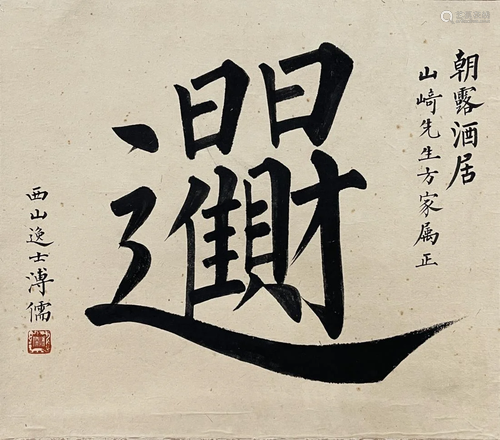 朝露酒居
山崎先生方家属正
日日進財
西山逸士溥儒